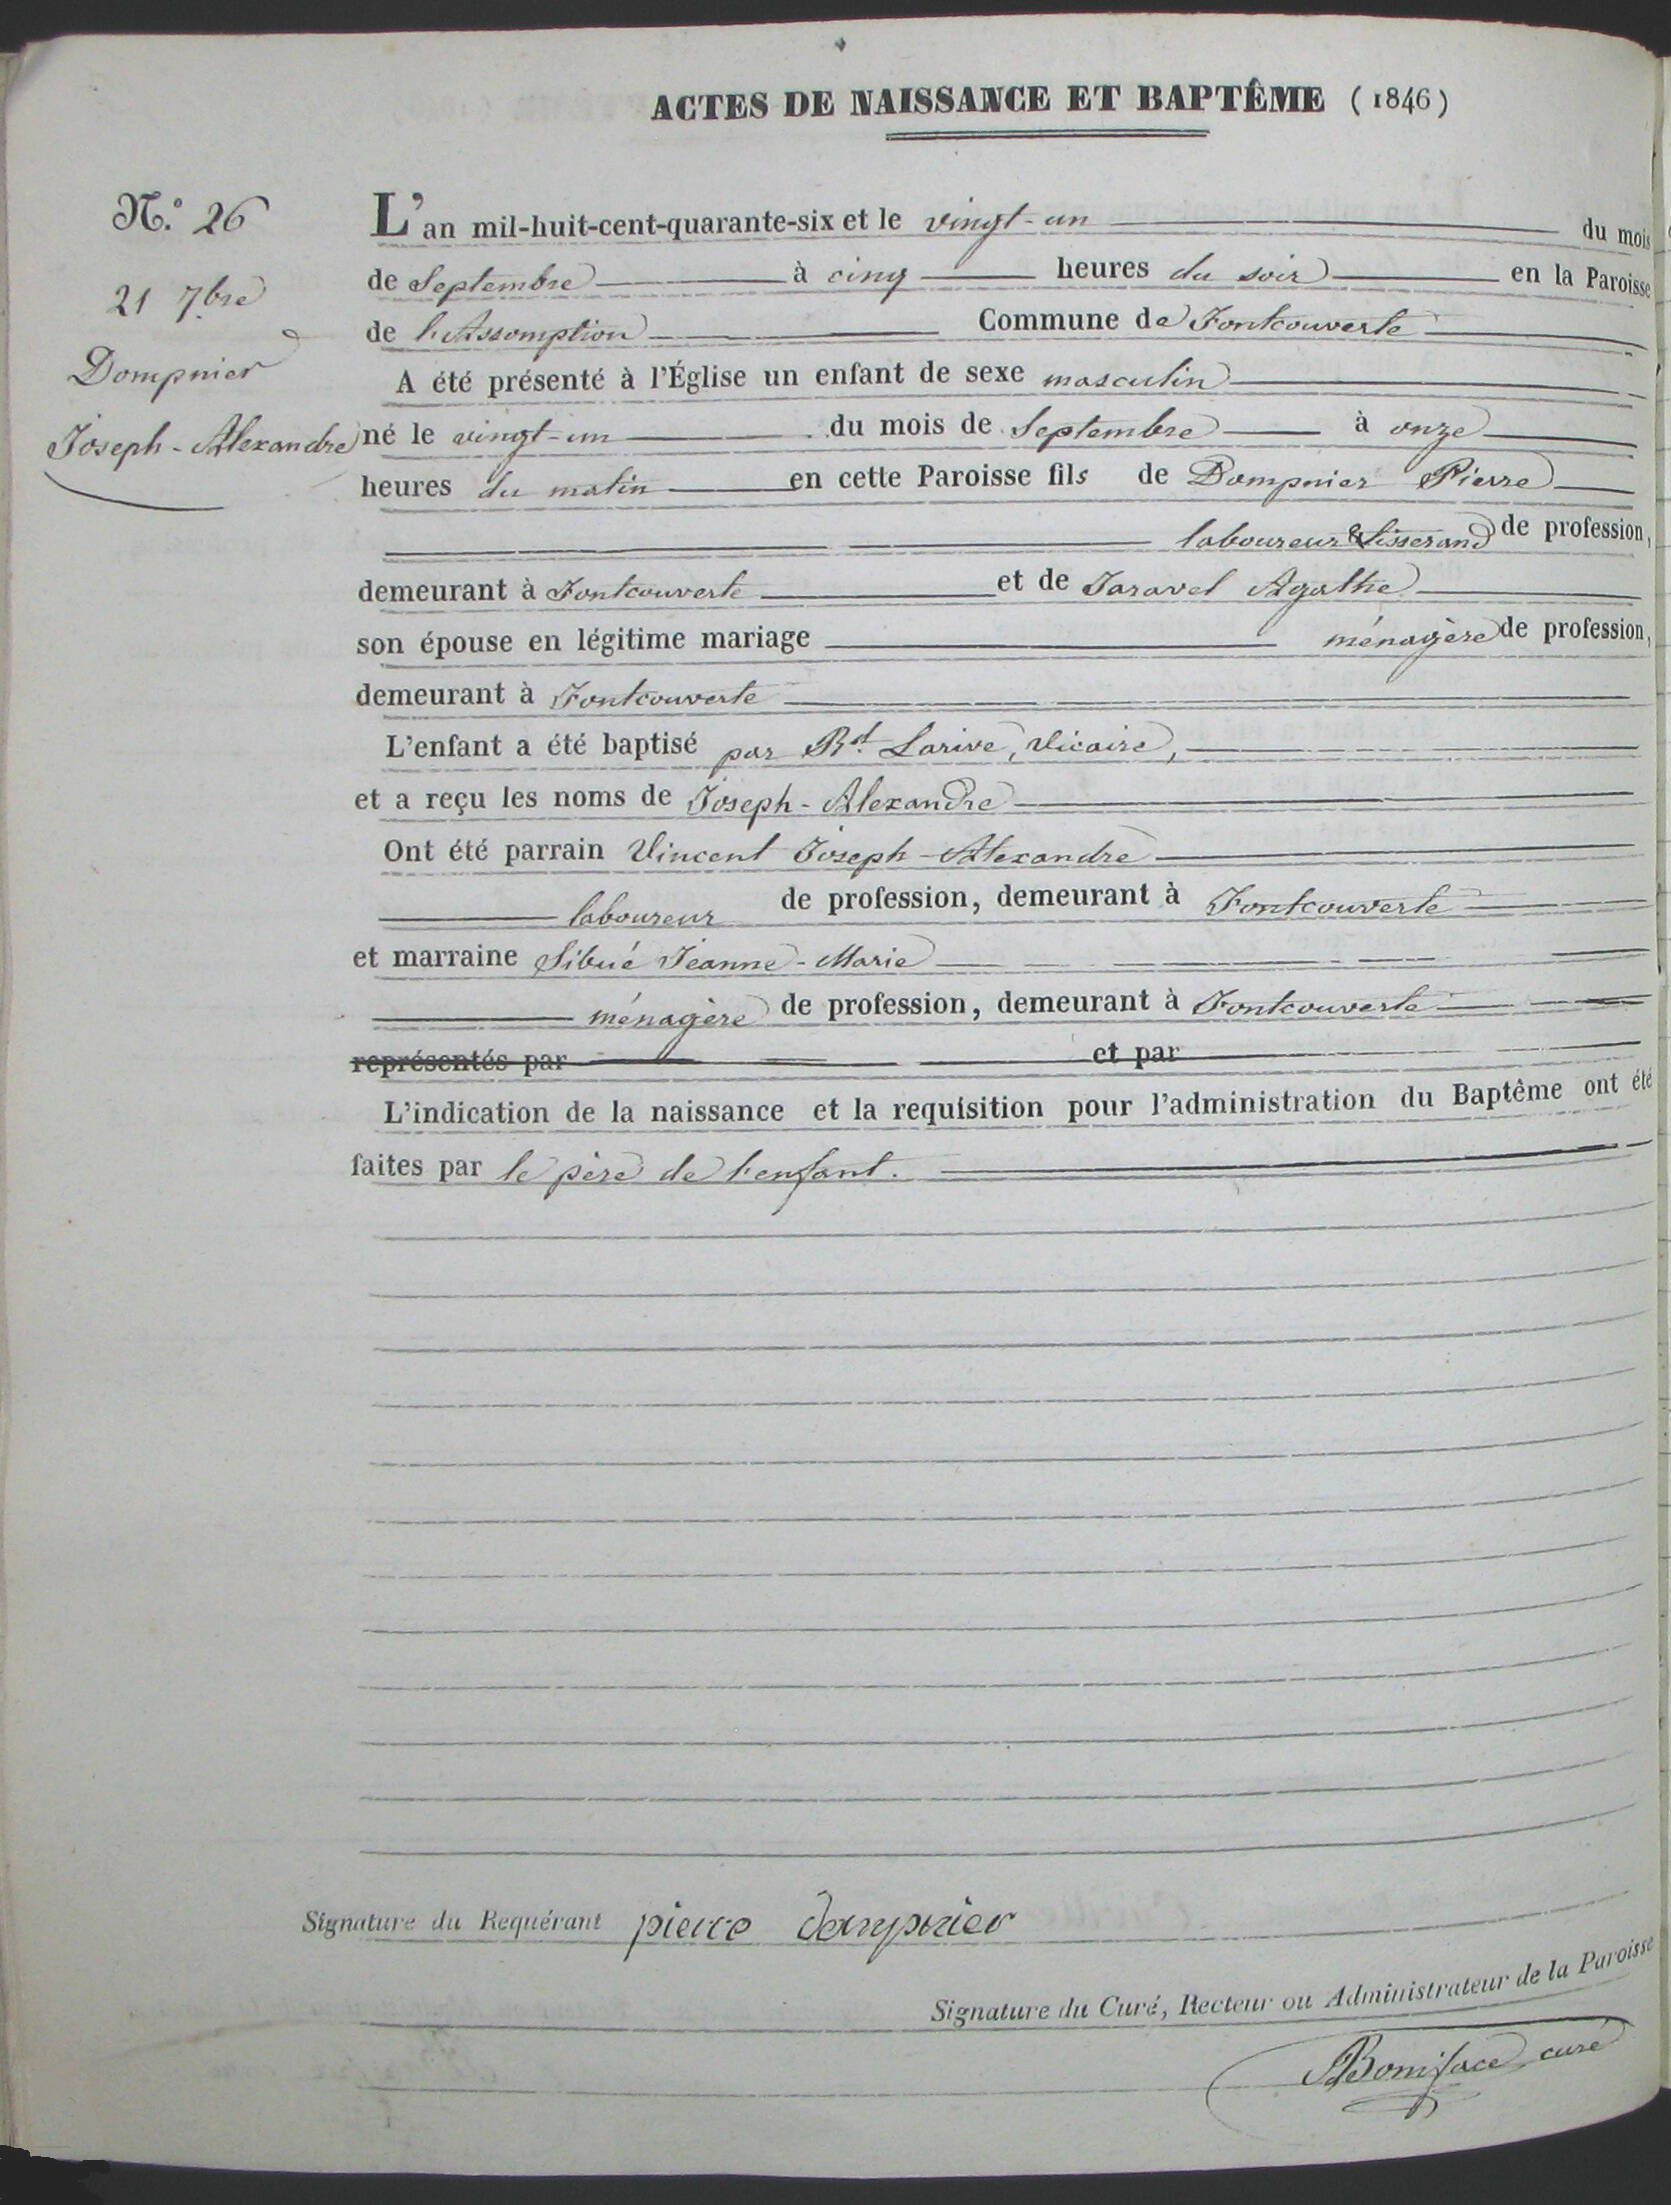 ACTES DE NAISSANCE ET BAPTÊME (1846)
N.º 26
21 7.bre
Dompnier
Joseph-Alexandre
L'an mil-huit-cent-quarante-six et le vingt-un du mois
de Septembre à cinq heures du soir en la Paroisse
de l'Assomption Commune de Fontcouverte
A été présenté à l'Église un enfant de sexe masculin
né le vingt-un du mois de Septembre à onze
heures du matin en cette Paroisse fils de Dompnier Pierre
laboureur & tisserand de profession,
demeurant à Fontcouverte et de Taravel Agathe
son épouse en légitime mariage ménagère de profession,
demeurant à Fontcouverte
L'enfant a été baptisé par Rd. Larive, Vicaire,
et a reçu les noms de Joseph-Alexandre
Ont été parrain Vincent Joseph-Alexandre
laboureur de profession, demeurant à Fontcouverte
et marraine Sibué Jeanne-Marie
ménagère de profession, demeurant à Fontcouverte
représentés par et par
L'indication de la naissance et la requisition pour l'administration du Baptême ont été
faites par le père de l'enfant.
Signature du Requérant pierre dompnier
Signature du Curé, Recteur ou Administrateur de la Paroisse
Boniface curé